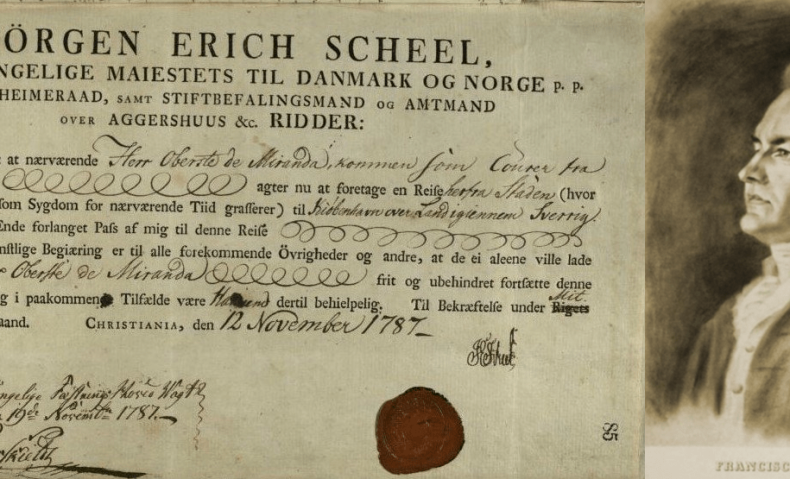 ÖRGEN ERICH SCHEEL,
NGELIGE MAIESTETS TIL DANMARK OG NORGE p. p.
HEIMERAAD, SAMT STIFTBEFALINGSMAND OG AMTMAND
OVER AGGERSHUUS &c. RIDDER:
: at nærværende Herr Oberste de Miranda, kommen som Courer fra
agter nu at foretage en Reise herfra Staden (hvor
som Sygdom for nærværende Tiid grasserer) til Kiöbenhavn over Land igiennem Sverrig.
Ende forlanget Pass af mig til denne Reise
nstlige Begiæring er til alle forekommende Övrigheder og andre, at de ei aleene ville lade
Oberste de Miranda frit og ubehindret fortsætte denne
g i paakommende Tilfælde være dertil behielpelig. Til Bekræftelse under Mit
Rigets
aand. CHRISTIANIA, den 12 November 1787.
ngelige Fæstnings Hoved Wagt
19de Novembr 1787.
FRANCISC